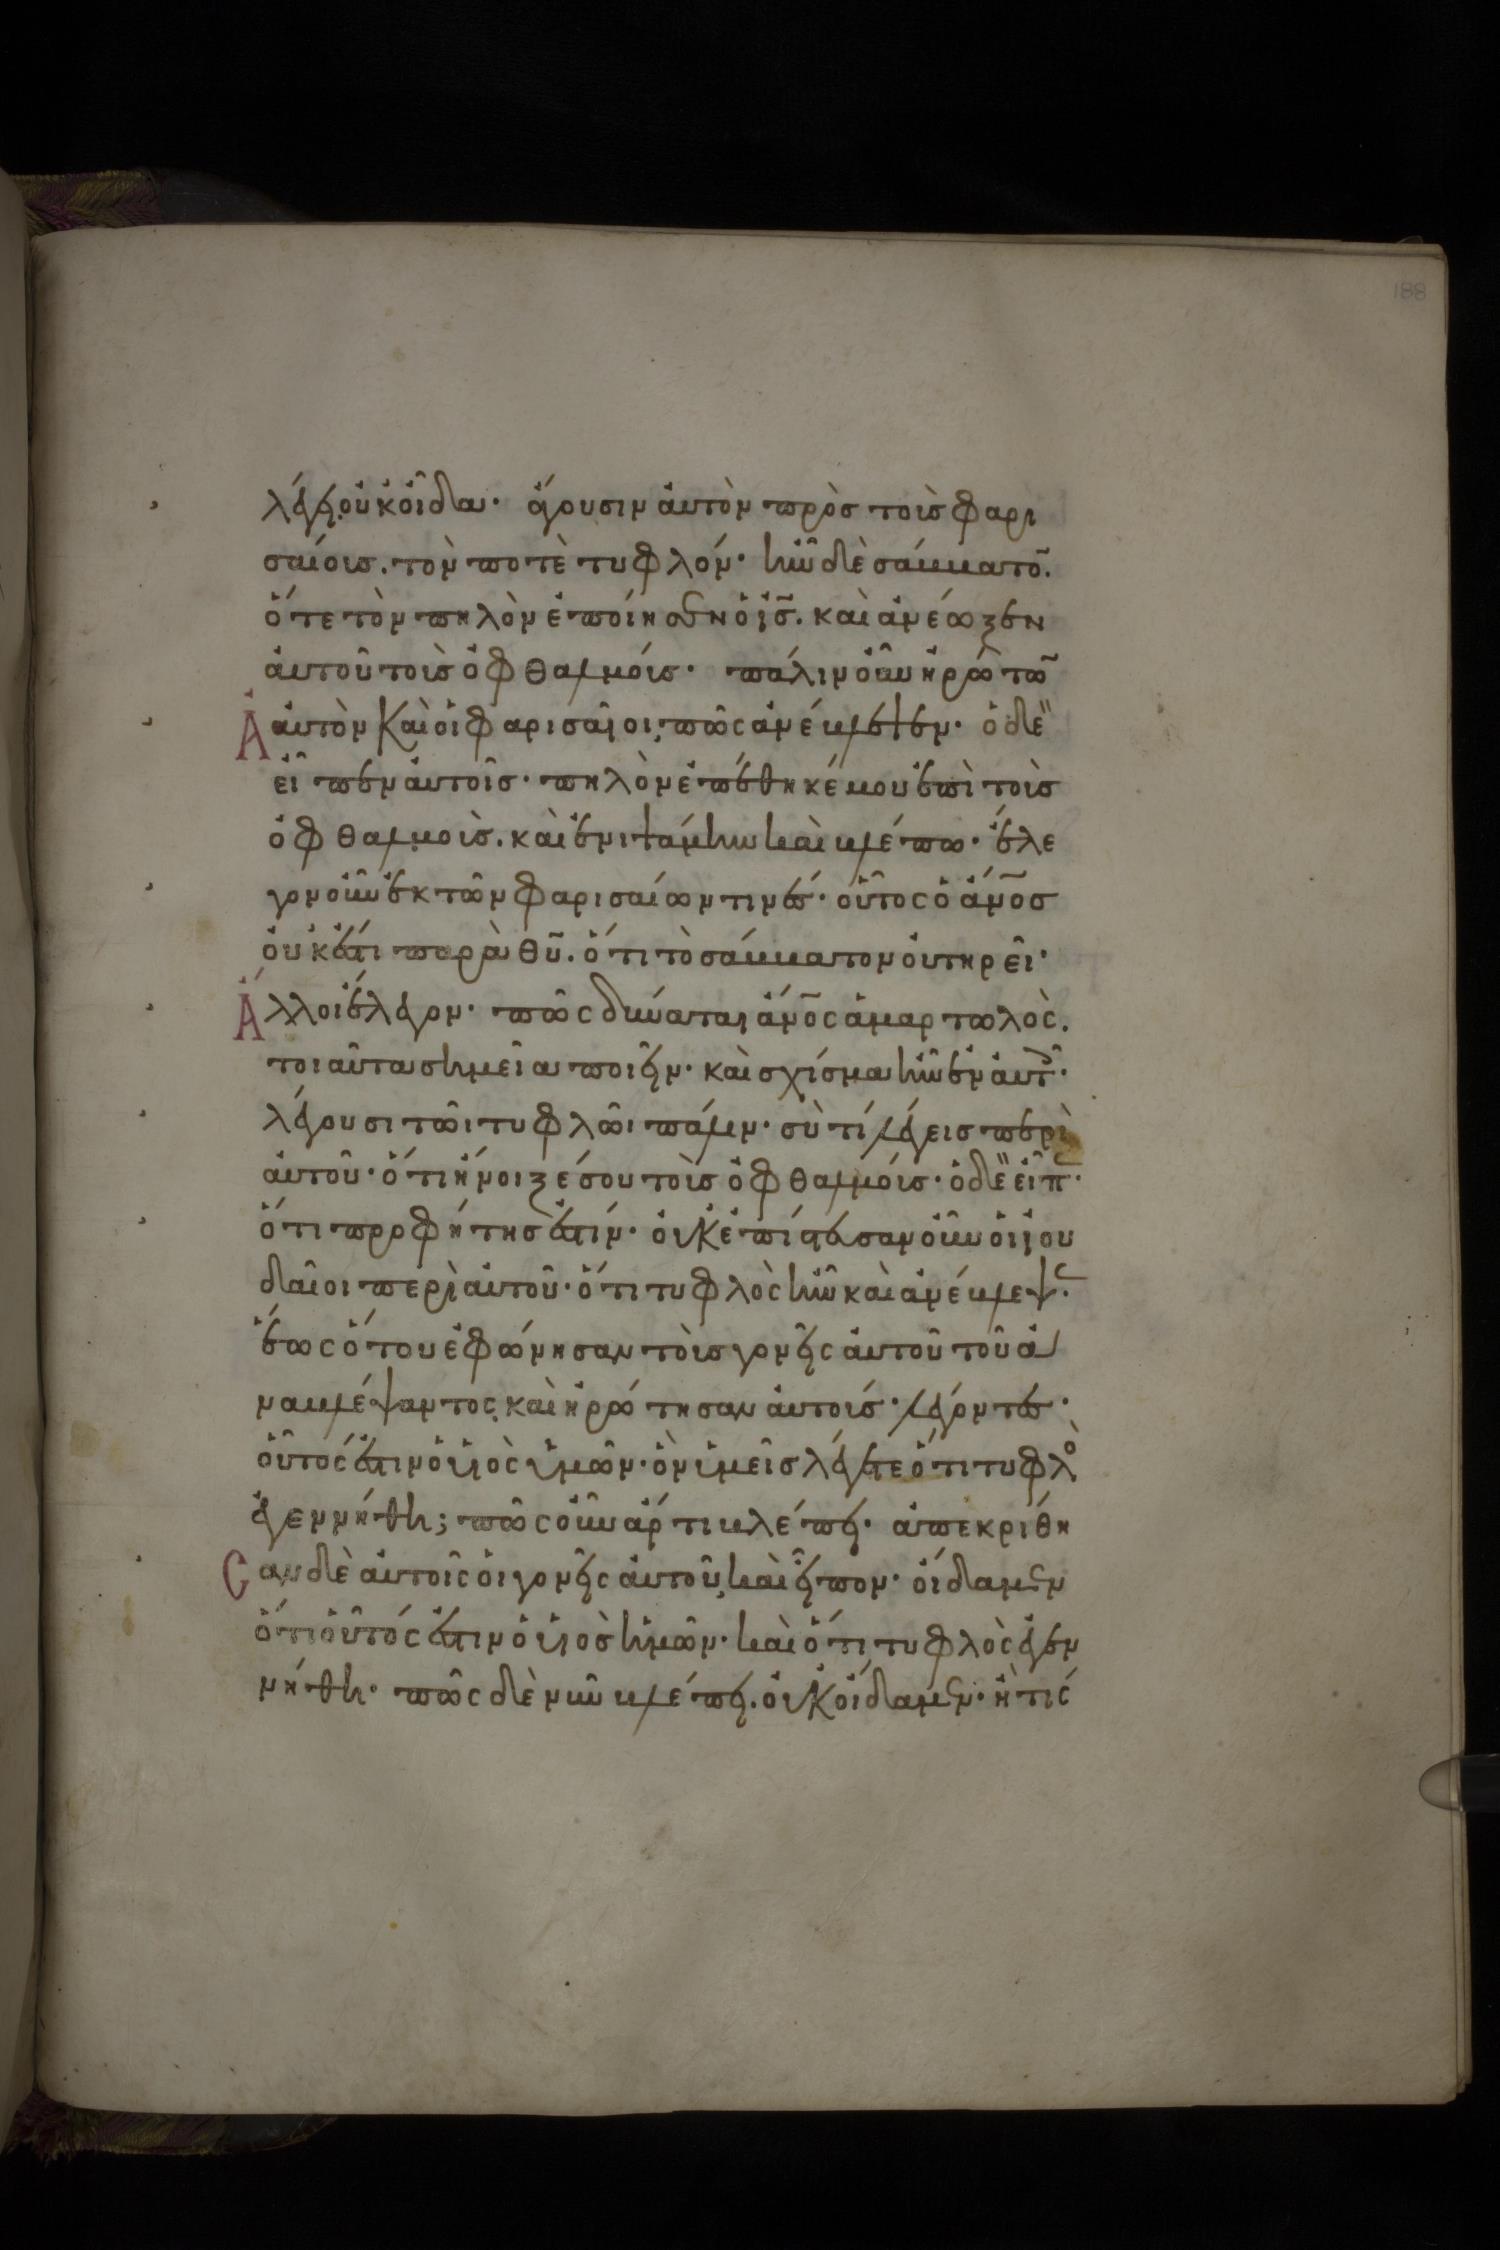 188
λέγει οὐκ οἶδα· ἄγουσιν αὐτὸν πρὸς τοὺς φαρι
σαίους. τόν ποτὲ τυφλόν· ἦν δὲ σάββατο̄.
ὅτε τὸν πηλὸν ἐποίησεν ὁ ις̄. καὶ ἀνέωξεν
αὐτοῦ τοὺς ὀφθαλμούς· πάλιν οὖν ἠρώτω̄
αὐτὸν καὶ οἱ φαρισαῖοι, πῶς ἀνέβλεψεν· ὁ δὲ
εἶπεν αὐτοῖς· πηλὸν ἐπέθηκέ μου ἐπὶ τοὺς
ὀφθαλμοὺς. καὶ ἐνιψάμην καὶ βλέπω· ἔλε
γον οὖν ἐκ τῶν φαρισαίων τινές· οὗτος ὁ ἄν̄ος
οὐκ ἔστι παρὰ θῡ. ὅτι τὸ σάββατον οὐ τηρεῖ·
Ἄλλοι ἔλεγον· πῶς δύναται ἄν̄ος ἁμαρτωλὸς.
τοιαῦτα σημεῖα ποιεῖν· καὶ σχίσμα ἦν ἐν αὐτ·
λέγουσι τῶι τυφλῶι πάλιν· σὺ τί λέγεις περὶ
αὐτοῦ· ὅτι ἤνοιξέ σου τοὺς ὀφθαλμούς· ὁ δὲ εἶπ·
ὅτι προφήτης ἐστίν· οὐκ ἐπίστευσαν οὖν οἱ ἰου
δαῖοι περὶ αὐτοῦ· ὅτι τυφλὸς ἦν καὶ ἀνέβλεψ·
ἕως ὅτου ἐφώνησαν τοὺς γονεῖς αὐτοῦ τοῦ ἀ
ναβλέψαντος, καὶ ἠρώτησαν αὐτούς· λέγοντες·
οὗτός ἐστιν ὁ υἱὸς ὑμῶν· ὃν ὑμεῖς λέγετε ὅτι τυφλὸ
ἐγεννήθη; πῶς οὖν ἄρτι βλέπει· ἀπεκρίθη
Σαν δὲ αὐτοῖς οἱ γονεῖς αὐτοῦ, καὶ εἶπον· οἴδαμεν
ὅτι οὗτός ἐστιν ὁ υἱὸς ἡμῶν· καὶ ὅτι τυφλὸς ἐγεν
νήθη· πῶς δὲ νῦν βλέπει. οὐκ οἴδαμεν· ἢ τίς